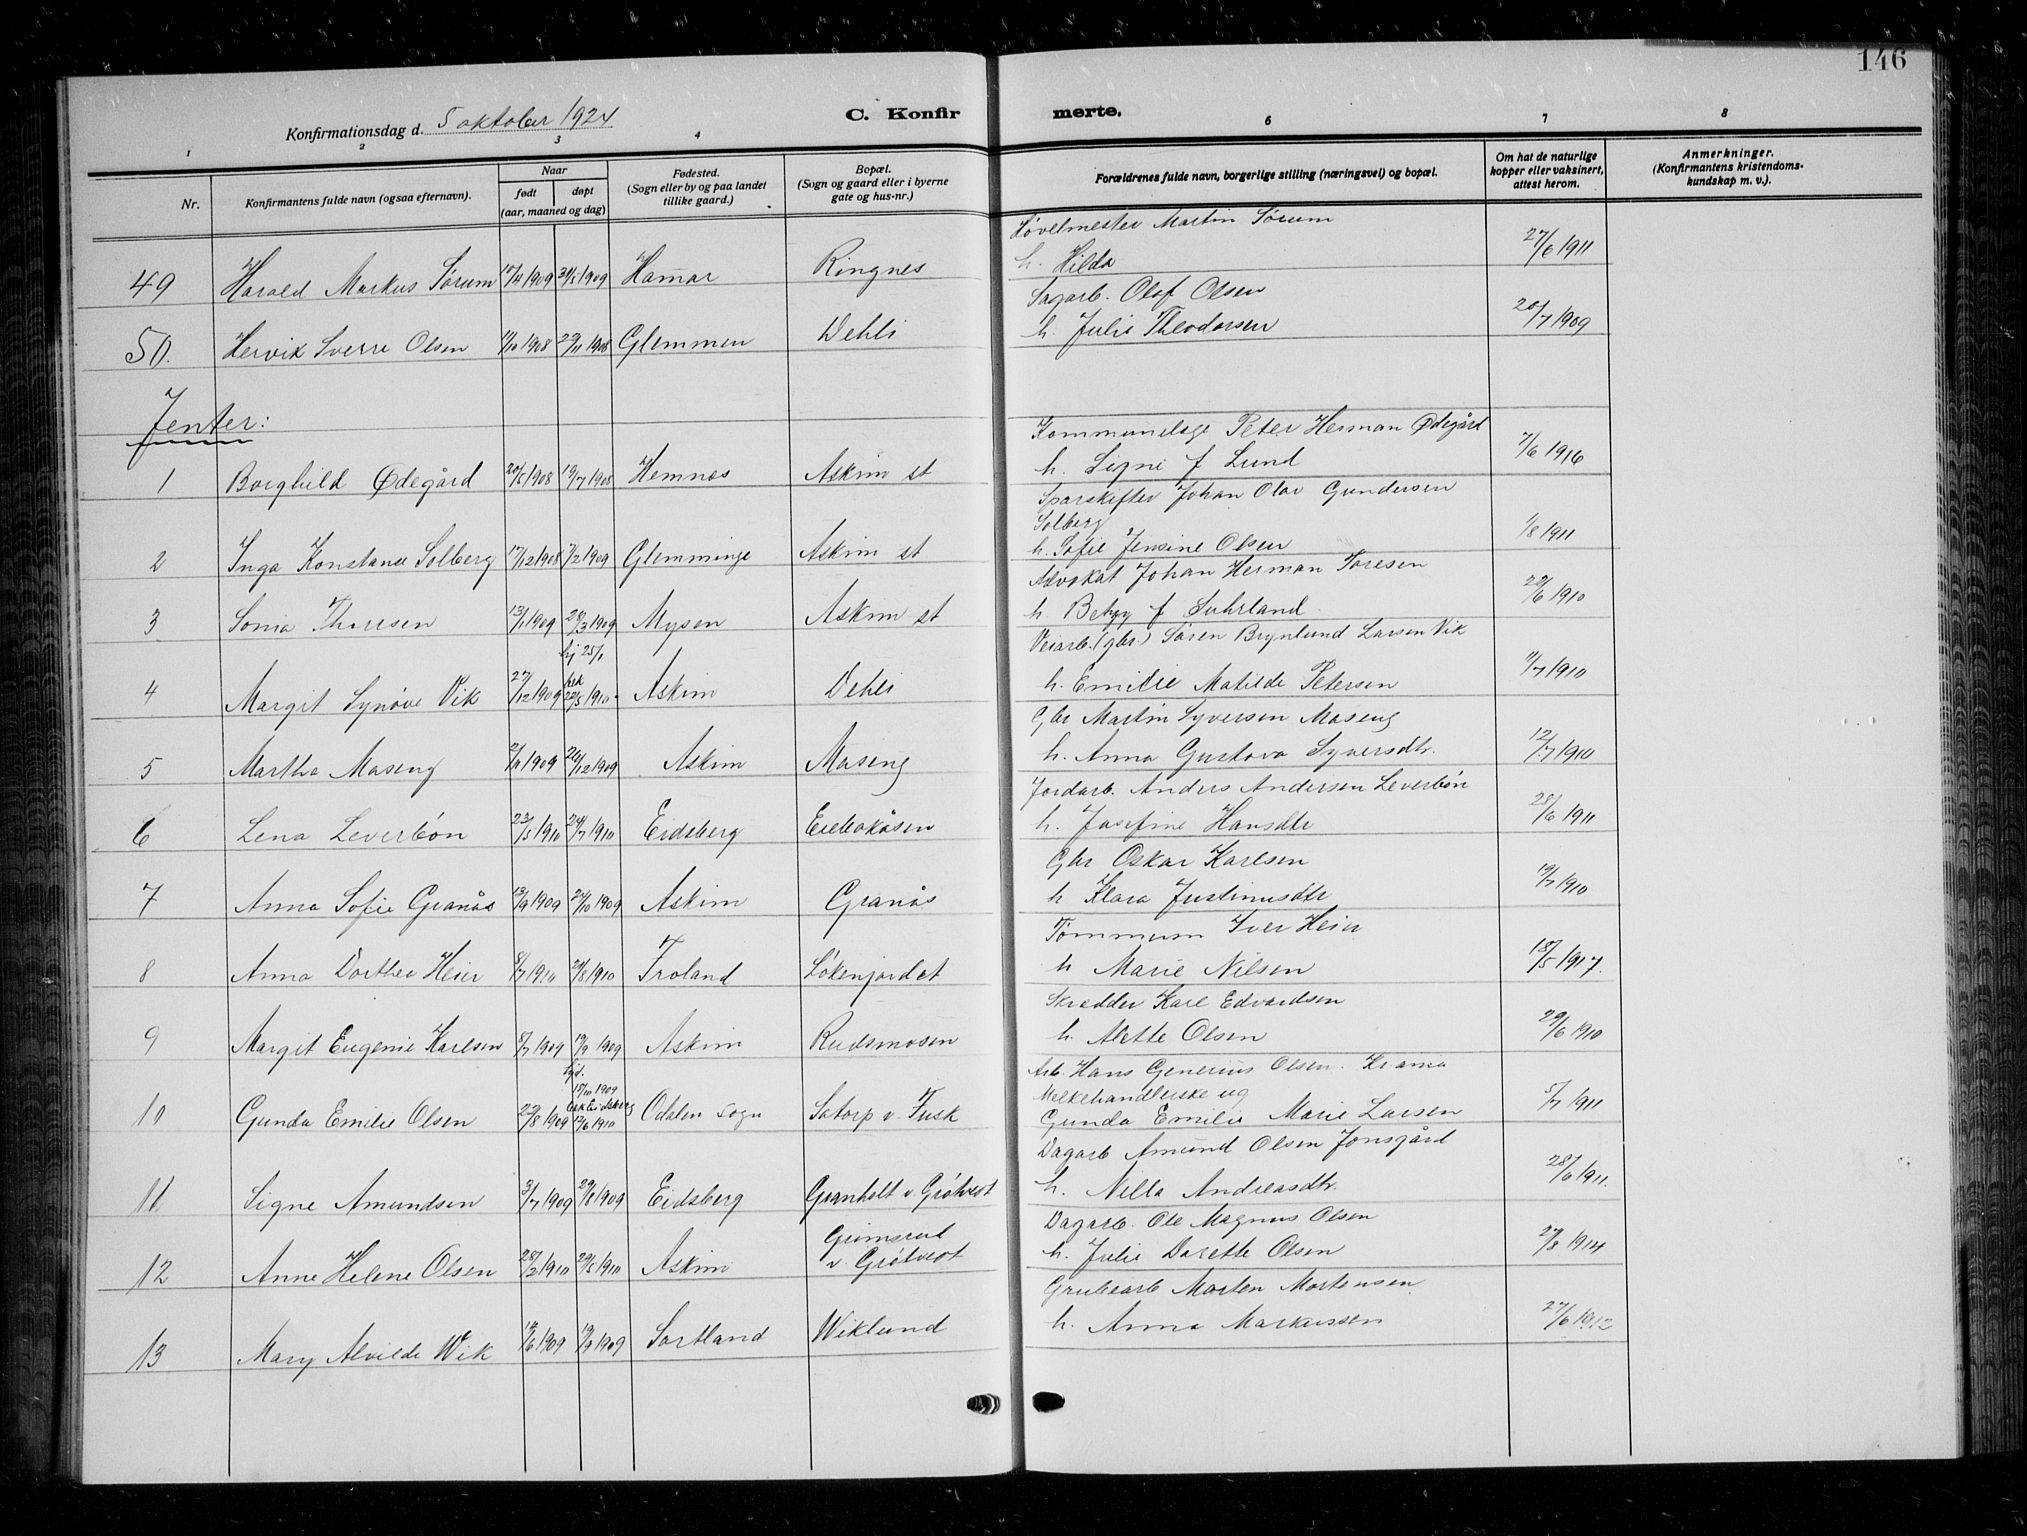 146
Konfirmationsdag d. 5 oktober 1924
C. Konfirmerte.
1 2 3 4 6 7 8
Nr.
Konfirmantens fulde navn (ogsaa efternavn).
Naar
født døpt
(aar, maaned og dag)
Fødested.
(Sogn eller by og paa landet
tillike gaard.)
Bopæl.
(Sogn og gaard eller i byerne
gate og hus-nr.)
Forældrenes fulde navn, borgerlige stilling (næringsvei) og bopæl.
Om hat de naturlige
kopper eller vaksinert,
attest herom.
Anmerkninger.
(Konfirmantens kristendoms-
kundskap m. v.).
Høvelmester Martin Sørum
49 Harald Markus Sørum 1909 1909 Hamar Ringnes h. Hilda 27/6 1911
Sagarb. Olaf Olsen
50. Hervik Sverre Olsen 1908 1908 Glemmen Dehli h. Julie Theodorsen 20/7 1909
Jenter:
Peter Herman Ødegård
1 Borghild Ødegård 20/5 1908 19/7 1908 Hemnes Askim st h. Signe f Lund 7/6 1916
Johan Olav Gundersen
Solberg
2 Inga Konstanse Solberg 17/12 1908 7/2 1909 Glemminge Askim st h. Sofie Jensine Olsen 1/8 1911
Advokat Johan Herman Toresen
3 Sonia Thoresen 13/1 1909 28/3 1909 Mysen Askim st h. Betzy f Suhrland 28/6 1910
hj 25/1
Veiarb. (gbr.) Søren Brynlund Larsen Vik
4 Margit Synøve Vik 27/12 1909 22/5 1910 Askim Dehli h. Emilie Matilde Petersen 11/7 1910
Gbr Martin Syversen Maseng
5 Martha Maseng 2/11 1909 26/12 1909 Askim Maseng h. Anna Gustava Syversdtr. 12/7 1910
Jordarb. Anders Andersen Leverbøn
6 Lena Leverbøn 23/5 1910 24/7 1910 Eidsberg h. Josefine Hansdtr 28/6 1911
Gbr Oskar Karlsen
7 Anna Sofie Granås 13/9 1909 24/10 1909 Askim Granås h Klara Justinusdtr 19/7 1910
Tømmerm Iver Heier
8 Anna Dorthea Heier 8/7 1910 21/8 1910 Troland Løkenjordet h Marie Nilsen 18/5 1917.
Skrædder Karl Edvardsen
9 Margit Eugenie Karlsen 8/7 1909 19/9 1909 Askim Rudsmosen h. Alette Olsen 29/6 1910
Arb. Hans Generius Olsen. Krania
15/10 1909
Melkehandlerske ug
10 Gunda Emilie Olsen 22/8 1909 12/6 1910 Odalen sogn Satorp v. Tusk Gunda Emilie Marie Larsen 5/7 1911
Dagarb Amund Olsen Jonsgård
11 Signe Amundsen 3/7 1909 29/8 1909 Eidsberg Granholt v. Grøtvedt h. Nilla Andreasdtr. 28/6 1911.
Grimsrud
Dagarb. Ole Magnus Olsen
12 Anne Helene Olsen 28/2 1910 29/5 1910 Askim v. Grøtvedt h. Julie Dorette Olsen 27/8 1914
Grubearb Morten Mortensen
13 Mary Alvilde Wik 1909 19/9 1909 Sortland Wiklund h. Anna Markussen 27/6 1912